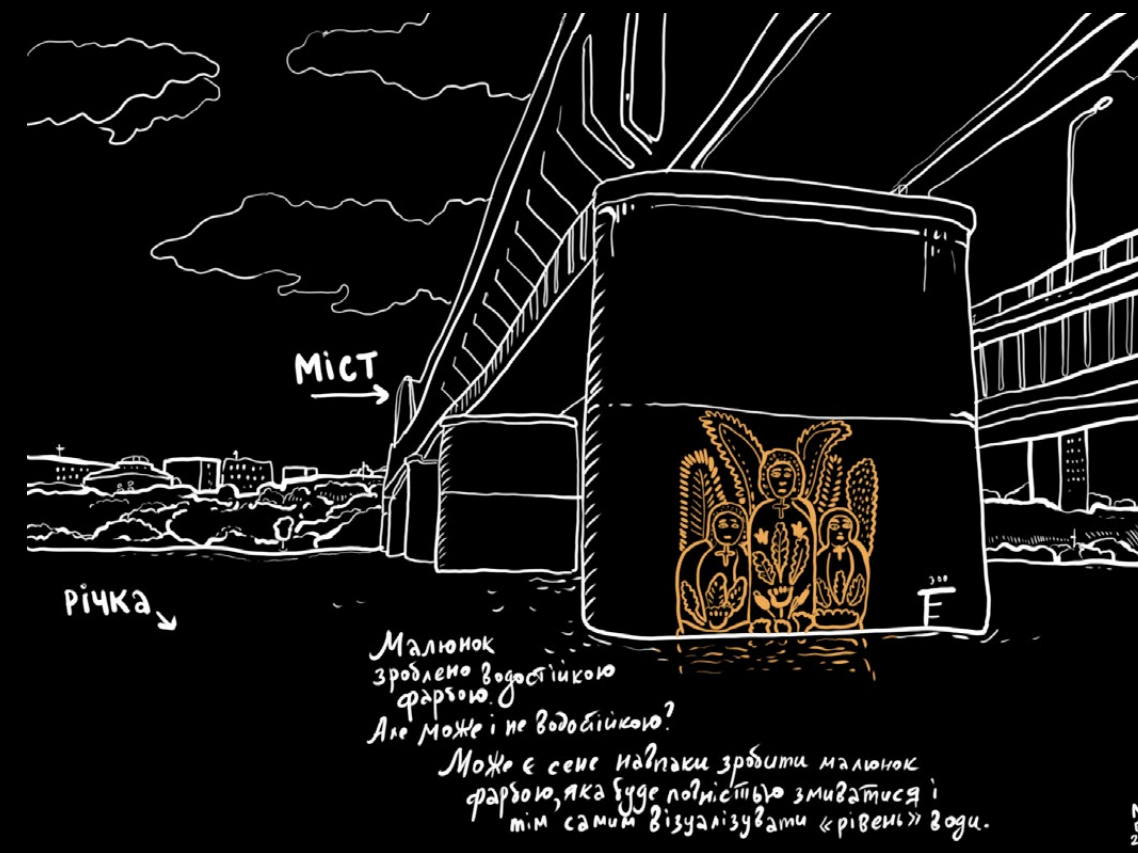 МІСТ
РІЧКА
300
Малюнок
зроблено водостійкою
фарбою.
Але може і не водостійкою?
Може є сенс навпаки зробити малюнок
фарбою, яка буде повністью змиватися і
тім самим візуалізувати «рівень» води.